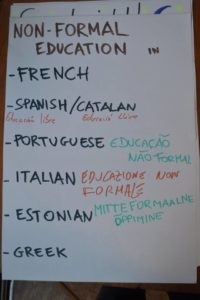 NON-FORMAL
EDUCATION IN
- FRENCH
- SPANISH/CATALAN
Educación libre Educació lliure
- PORTUGUESE EDUCAÇÃO
NÃO-FORMAL
- ITALIAN EDUCAZIONE NON
FORMALE
- ESTONIAN MITTEFORMAALNE
ÕPPIMINE
- GREEK